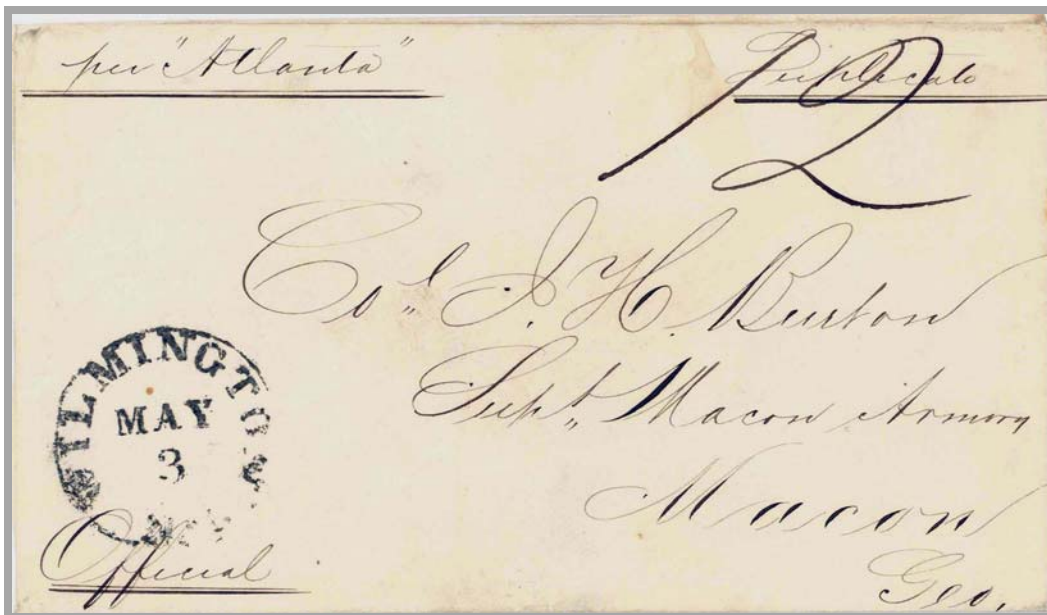 per "Atlanta"
Duplicate
12
Col. J. H. Burton
Supt. Macon Armory
Macon
Geo.
WILMINGTON
MAY
3
Official